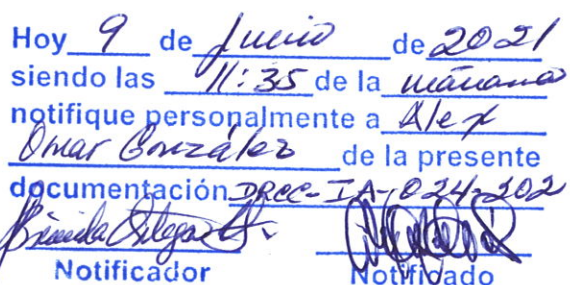 Hoy 9 de Junio de 2021
siendo las 11:35 de la mañana
notifique personalmente a Alex
Omar González de la presente
documentación DRCC-IA-024-202
Notificador Notificado